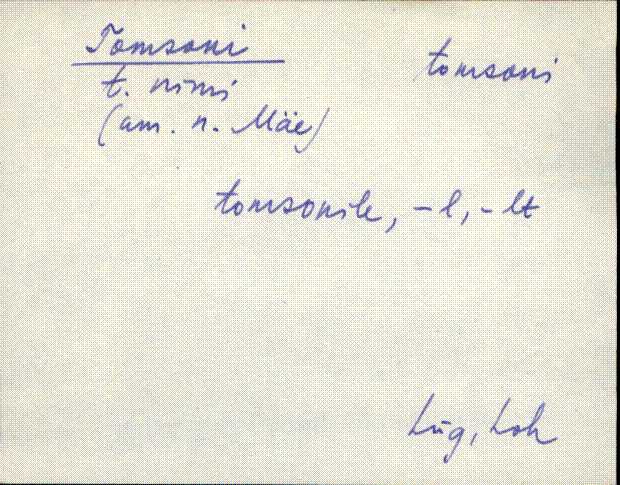 Tomsoni
tomsoni
t. nimi
(am. n. Mäe)
tomsonile, -l, -lt
Lüg, Loh